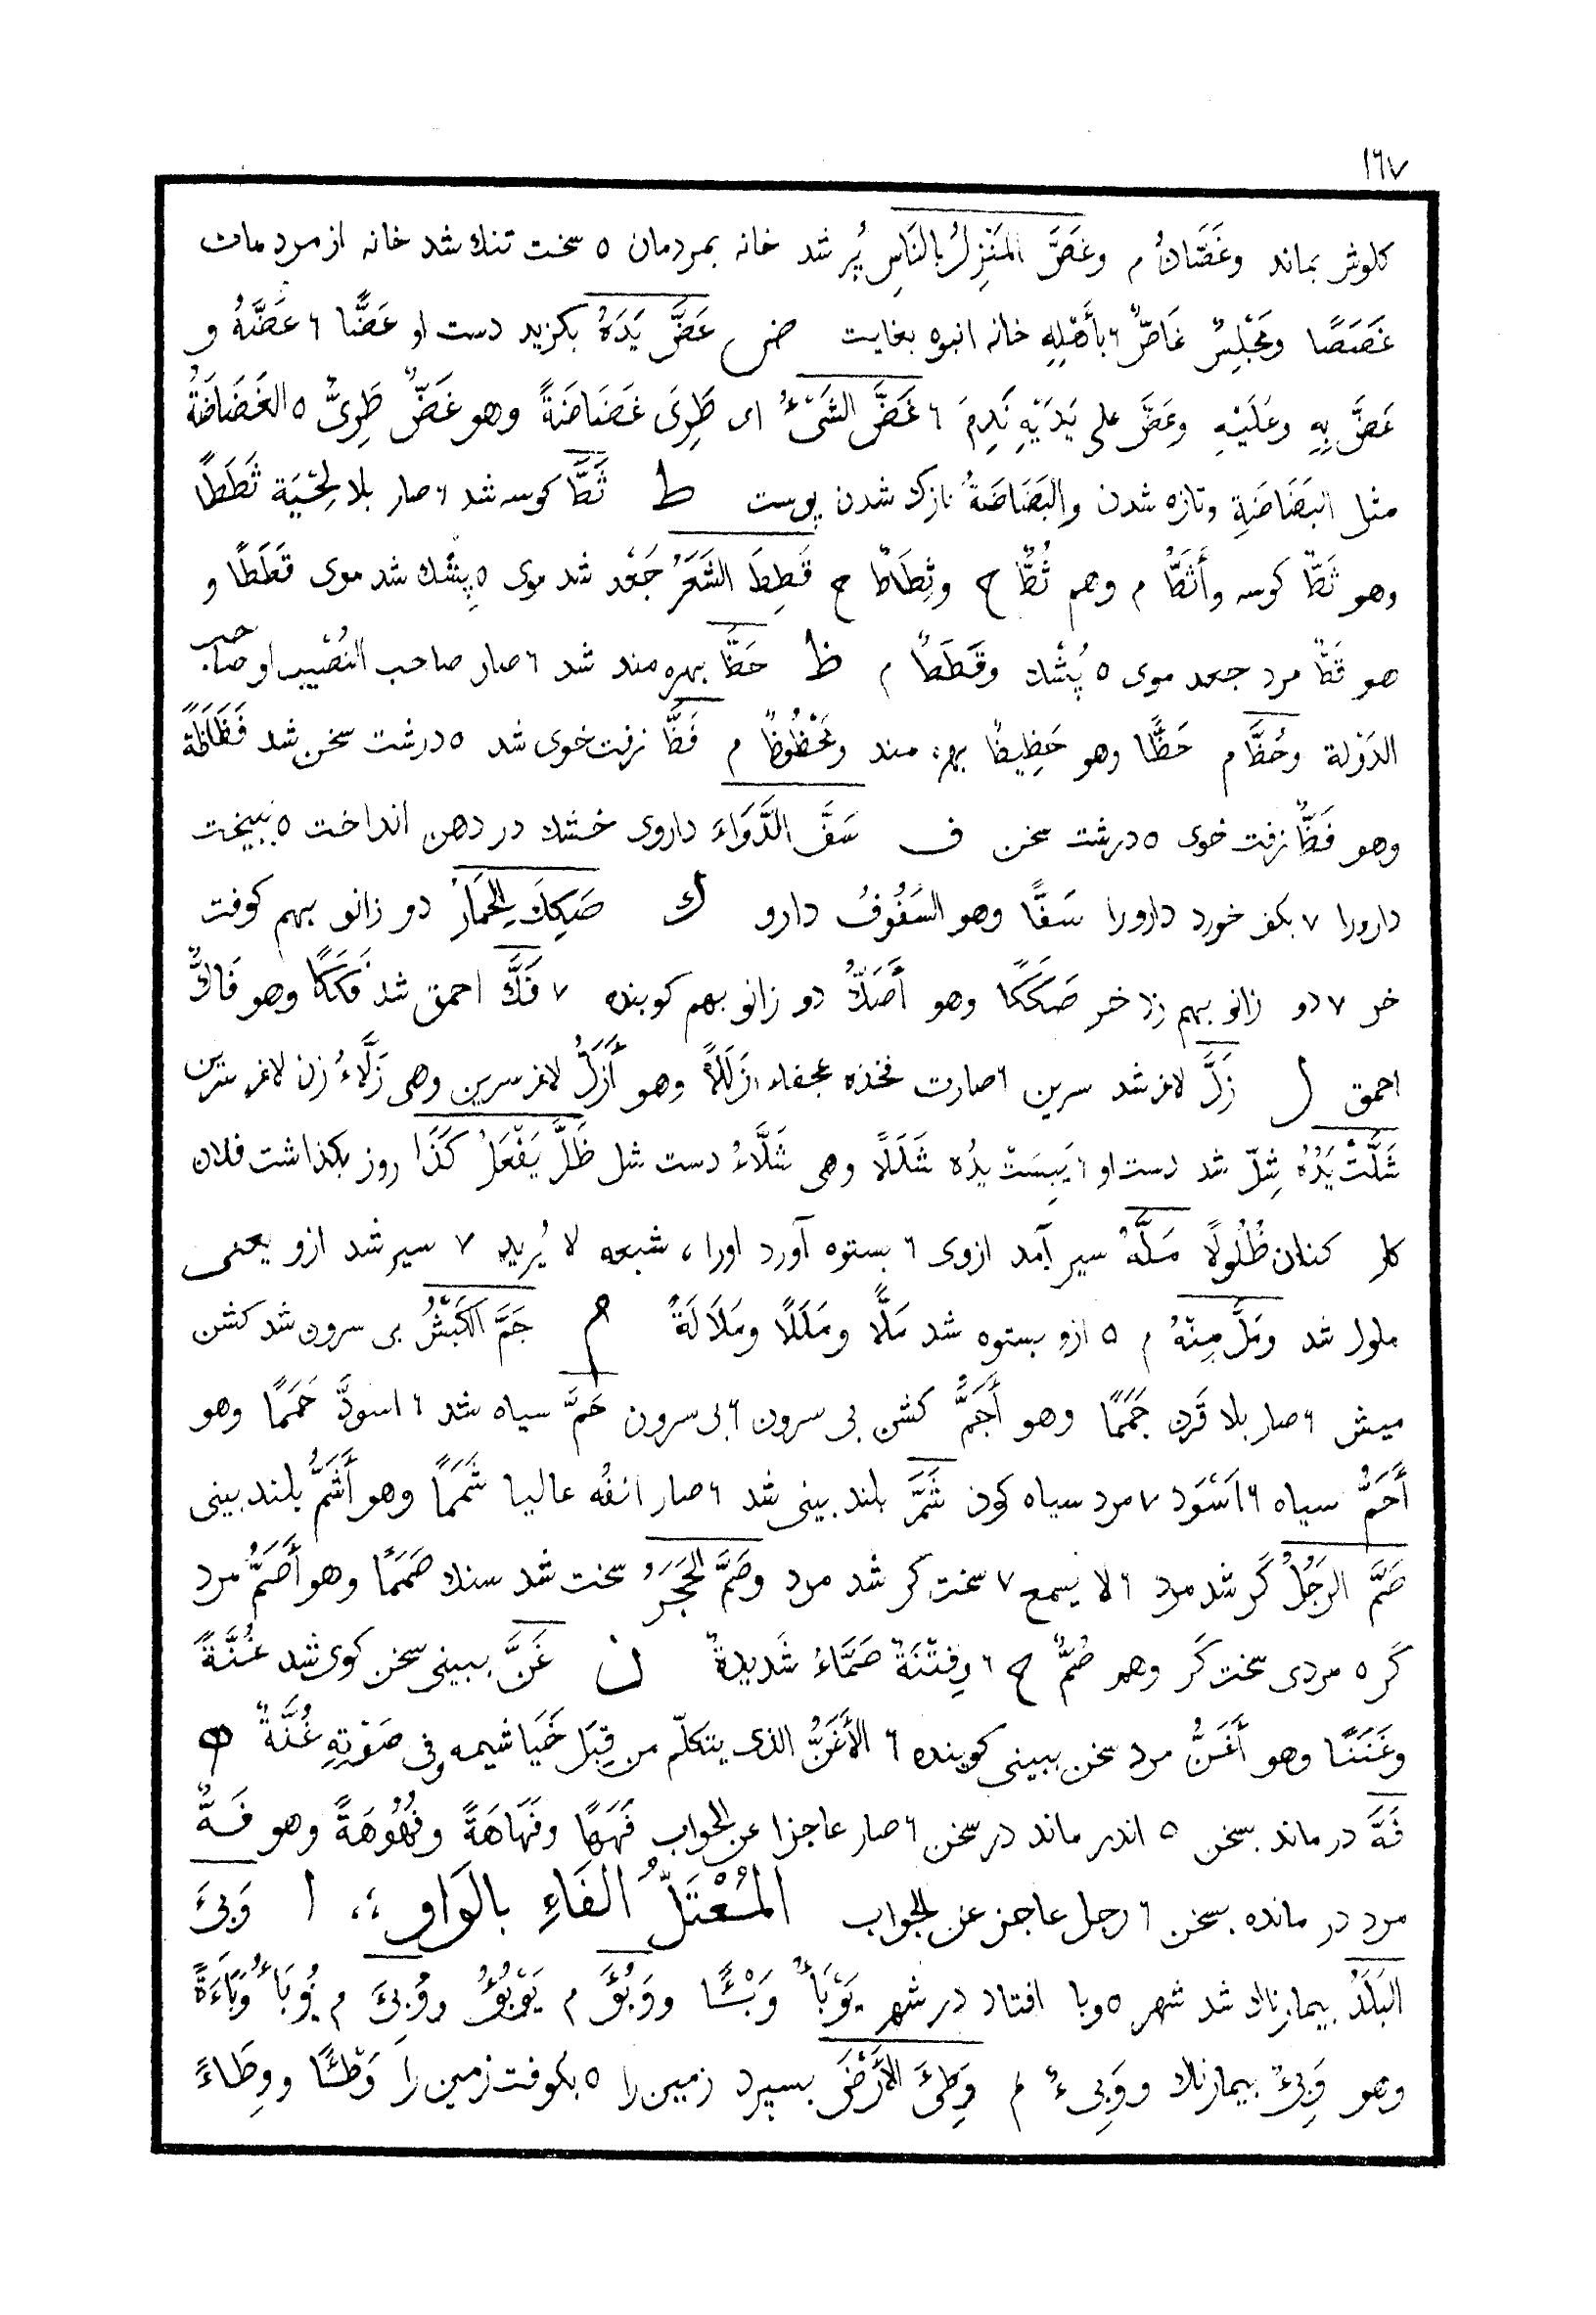 ١٦٧
كلوش بماند وغَصَّانٌ م وغَصَّ المَنْزِلُ بالنَاسِ پُر شد خانه بمردمان ٥ سخت تنك شد خانه از مردمان
غَصَصًا ومَجْلِسٌ غَاصٌّ ٦ بأَهْلِهِ خانه انبوه بغايت ض عَضَّ يَدَهُ بكزيد دست او عَضًّا ٦ عَضَّهُ و
عَضَّ بِهِ وعَلَيْهِ وعَضَّ على يَدَيْهِ نَدِمَ ٦ غَضَّ الشَىْءُ اى طَرِىَ غَضَاضَةً وهو غَضٌّ طَرِىٌّ ٥ الغَضَاضَةُ
مثل البَضَاضَةِ وتازه شدن والبَضَاضَةُ نازك شدن پوست ط ثَطَّ كوسه شد ٦ صار بلا لِحْيَة ثَطَطًا
وهو ثَطٌّ كوسه وأَثَطُّ م وهم ثُطٌّ ج وثِطَاطٌ ج قَطِطَ الشَعَرُ جَعْد شد موى ٥ پِشْك شد موى قَطَطًا و
هو قَطٌّ مرد جعد موى ٥ پُشْك وقَطَطٌ م ظ حَظَّ بهره مند شد ٦ صار صاحب النَصْيب او صاحب
الدَوْلة وحُظَّ م حَظًّا وهو حَظِيظٌ بهره مند ومَحْظُوظٌ م فَظَّ زفت خوى شد ٥ درشت سخن شد فَظَاظَةً
وهو فَظٌّ زفت خوى ٥ درشت سخن ف سَفَّ الدَّوَاءَ داروى خشك در دهن انداخت ٥ ببيخت
دارورا ٧ بكف خورد دارورا سَفًّا وهو السَفُوفُ دارو ك صَكِكَ الحِمَارُ دو زانو بهم كوفت
خر ٧ دو زانو بهم زد خر صَكَكًا وهو أَصَكُّ دو زانو بهم كوبنده ٧ فَكَّ احمق شد فَكَكًا وهو فَاكٌّ
احمق ل زَلَّ لاغر شد سرين ٦ صارت فخذه عجفاء زَلَلًا وهو أَزَلُّ لاغر سرين وهى زَلَّاءُ زن لاغر سرين
شَلَّتْ يَدُهُ شِلّ شد دست او ٦ يَبِسَتْ يدُه شَلَلًا وهى شَلَّاءُ دست شل ظَلَّ يَفْعَلُ كَذَا روز بكذاشت فلان
كار كنان ظُلُولًا مَلَّهُ سير آمد ازوى ٦ بستوه آورد اورا ، شبعه لا يُريد ٧ سير شد ازو يعنى
ملول شد ومَلَّ مِنْهُ م ٥ ازو بستوه شد مَلًّا ومَلَلًا ومَلَالَةً م جَمَّ الكَبْشُ بى سرون شد كشن
ميش ٦ صار بلا قَرن جَمَمًا وهو أَجَمُّ كشن بى سرون ٦ بى سرون حَمَّ سياه شد ٦ اسودّ حَمَمًا وهو
أَحَمُّ سياه ٦ اَسْوَد ٧ مرد سياه كون شَمَّ بلند بينى شد ٦ صار انفُه عاليا شَمَمًا وهو أَشَمُّ بلند بينى
صَمَّ الرَجُلُ كَر شد مرد ٦ لا يسمع ٧ سخت كر شد مرد وصَمَّ الحَجَرُ سخت شد سنك صَمَمًا وهو أَصَمُّ مرد
كَر ٥ مردى سخت كَر وهم صُمٌّ ج ٦ وفِتْنَةٌ صَمَّاءُ شَديدةٌ ن غَنَّ ببينى سخن كوى شد غُنَّةً
وغَنَنًا وهو أَغَنُّ مرد سخن ببينى كوينده ٦ الأَغَنُّ الذى يتكلّم من قِبَل خَيَاشيمه وفى صَوْتِهِ غُنَّةٌ ه
فَهَّ در ماند بسخن ٥ اندر ماند در سخن ٦ صار عاجزا عن الجواب فَهَهًا وفَهَاهَةً وفُهُوهَةً وهو فَهٌّ
مرد در مانده بسخن ٦ رجل عاجز عن الجواب المُعْتَلُّ الفَاءِ بالوَاوِ ،؛ ا وَبِئَ
البَلَدُ بيمارناك شد شهر ٥ وبا افتاد در شهر يَوْبَأُ وَبْئًا ووَبُؤَ م يَوْبُؤُ ووُبِئَ م يُوبَأُ وَبَاءَةً
وهو وَبِئٌ بيمارناك ووَبِىءٌ م وَطِئَ الأَرْضَ بسپرد زمين را ٥ بكوفت زمين را وَطْئًا ووِطَاءً